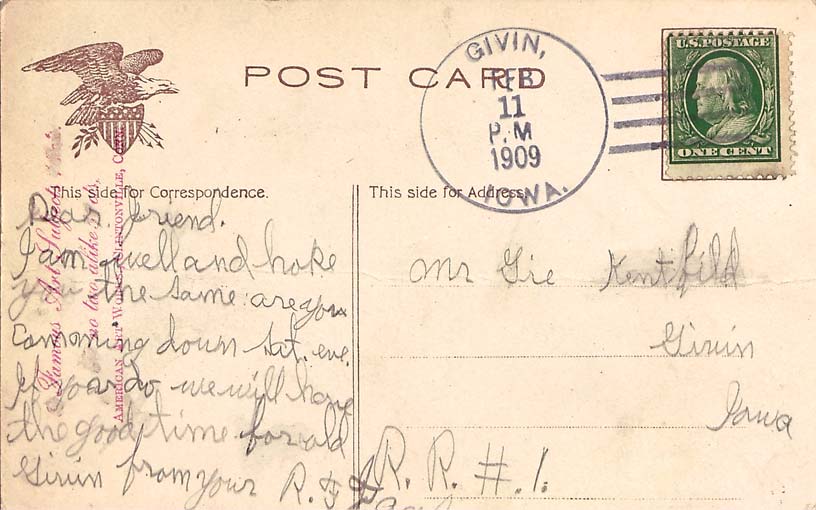 POST CARD
GIVIN,
FEB
11
P.M
1909
IOWA.
U.S. POSTAGE
ONE CENT
This side for Correspondence.
This side for Address.
Famous Art Subjects
no two alike
AMERICAN ART WORKS, CLINTONVILLE, CONN.
Dear friend.
I am well and hoke
you the same are you
Comming down Sat. eve.
If you do we will have
the good time for old
Givin from your R. F
Mr Gie Kentfild
Givin
Iowa
R. R. #. 1.